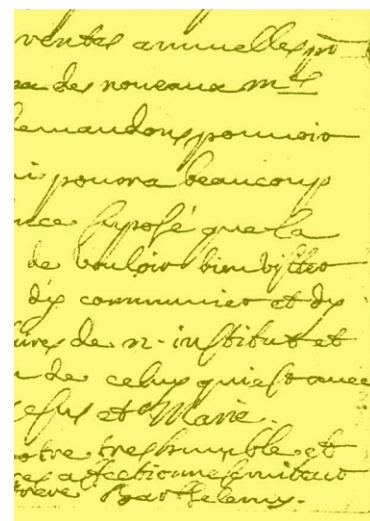 ventes annuelles pr
des noueaux mes
demandons pouuoir
poura beaucoup
suposé que la
de vouloir bien visiter
dy communier et dy
de n. institut et
de celuy qui est auec
et Marie.
tres humble et
affectionné seruiteur
frère Barthelemy.